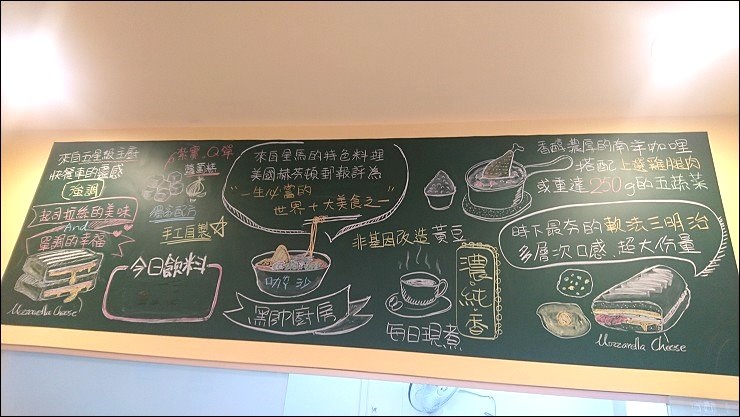 來自五星級主廚
快餐車的靈感
強調
起司拉絲的美味
And
豐滿的幸福
Mozzarella Cheese
紮實.Q彈
蘿蔔糕
獨家配方
手工自製
今日飲料
來自星馬的特色料理
美國赫芬頓郵報評為
"一生必嘗的
世界十大美食之一"
叻沙
黑師廚房
非基因改造黃豆
濃.純.香
每日現煮
香醇濃厚的南洋咖哩
搭配上選雞腿肉
或重達250g的五蔬菜
時下最夯的軟法三明治
多層次口感.超大份量
Mozzarella Cheese